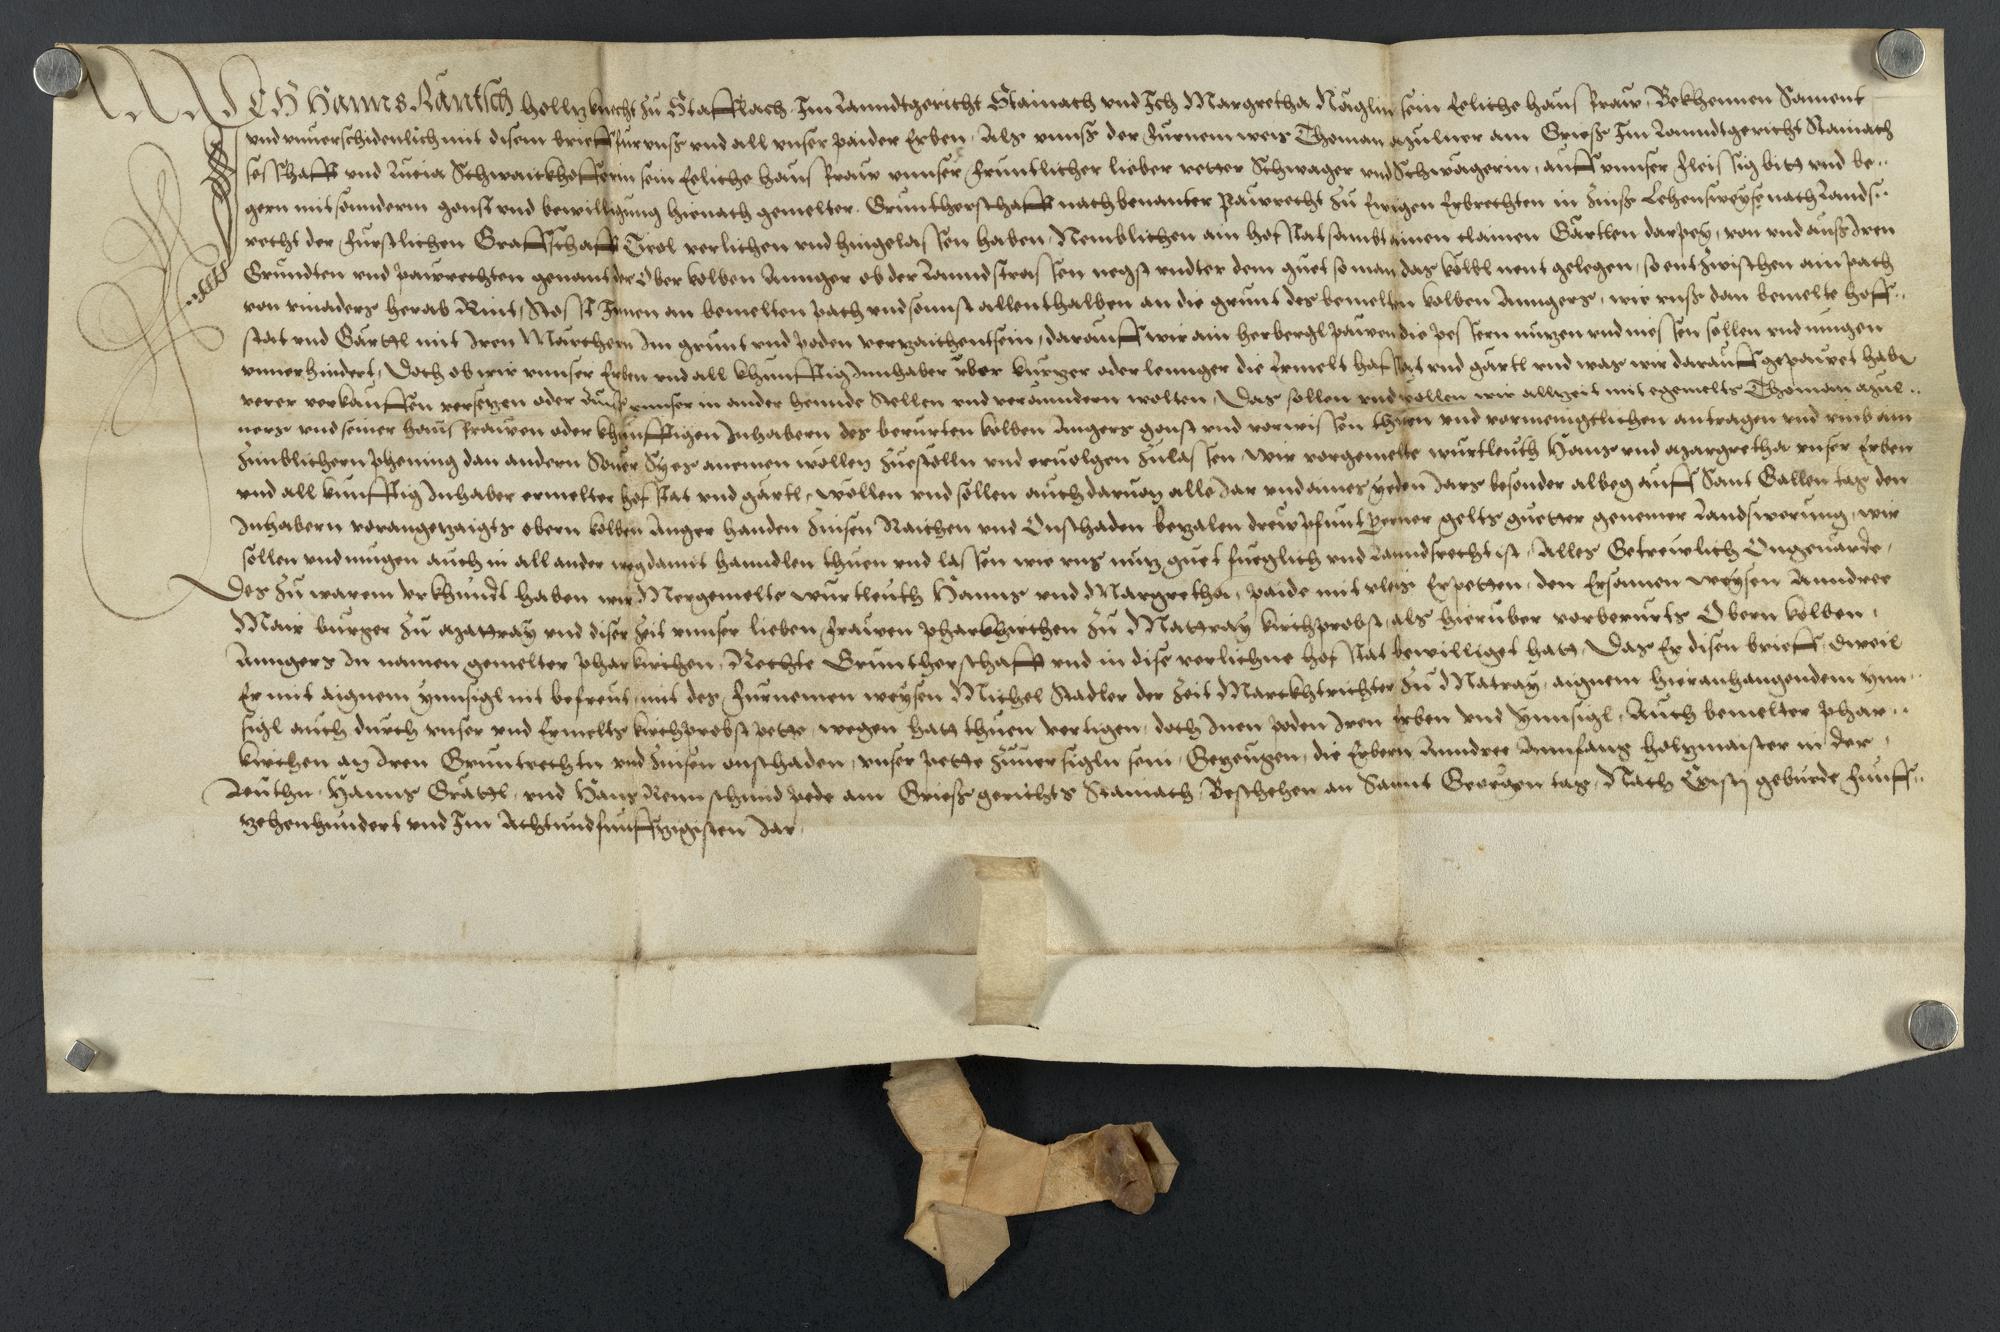 ICH Hanns Räntsch holltzknecht zu Stafflach Im Lanndtgericht Stainach vnd Ich Margretha Näglin sein Eeliche hausfraw, Bekhennen Sament
vnd vnuerschidenlich mit disem brieff fur vnnß vnd all vnser paider Erben, Als vnnß der furnem weis Thoman Mulner am Grieß Im Lanndtgericht Stainach
seßhafft vnd Lucia Schwaickhofferin sein Eeliche hausfraw vnnser fruntlicher lieber vetter Schwager vnd Schwägerin, auff vnnser fleissig bitt vnd be-
gern mit sonnderm gonst vnd bewilligung hienach gemelter Gruntherschafft nachbenanter pawrecht zu Ewigen Erbrechten in Zinß Lehensweyse nach Lands-
recht der furstlichen Graffschafft Tirol verlichen vnd hingelassen haben, Nemblichen ain hofstat sambt ainen clainen Gärtlen darpey, von vnd auß Iren
Grundten vnd pawrechten genant der Ober kolben Annger ob der Lanndstrassen negst vndter dem guet so man das kölbl nent gelegen, so entzwischen ain path
von vinaders herab Rint, Stosst Innen an bemelten path vnd sonnst allenthalben an die grunt des bemelten kolben Anngers, wie vnß dan bemelte hoff-
stat vnd Gärttl mit Iren Märchern Im grunt vnd poden verzaichent sein, darauff wir ain herbergl pawen die pessern nutzen vnd niessen sollen vnd mugen
vnuerhindert, Doch ob wir vnnser Erben vnd all khunfftig Innhaber vber kurtzer oder lennger die Ermelt hofstat vnd gärtl vnd was wir darauff gepauet haben
verer verkauffen versetzen oder aus vnnser in ander hennde Stellen vnd veränndern wolten, Das sollen vnd wollen wir allzeit mit egemelts Thoman Mul-
ners vnd seiner hausfrawen oder khunfftigen Inhabern des berurten kolben Angers gonst vnd vorwissen thuen vnd vormenigtlichen antragen vnd vmb ain
zimblichern phening dan andern Souer Sy es anemen wollen zuestelln vnd eruolgen zulassen wir vorgemelte wurtleuth Hans vnd Margretha vnser Erben
vnd all kunfftig Inhaber ermelter hofstat vnd gärtl, wollen vnd sollen auch daruon alle Iar vnd aines yeden Iars besonder albeg auff Sant Gallen tag den
Inhabern vorangezaigts obern kolben Anger handen Zinsen Raichen vnd Onschaden bezalen drew pfunt perner gelts guetter genemer Landswerung, wir
sollen vnd mugen auch in all ander weg damit hanndlen thuen vnd lassen wie vns nutz guet fueglich vnd Lanndsrecht ist, Alles Getrewlich Ongeuärde,
Des zu warem vrkhundt haben wir Mergemelte wurtleuth Hanns vnd Margretha, paide mit vleis Erpetten, den Ersamen weysen Anndree
Mair burger zu Mattray vnd diser Zeit vnnser lieben frawen pharkhirchen zu Mattray kirchprobst, als hieruber vorberurts Obern kolben
Anngers In namen gemelter pharkirchen, Rechte Gruntherschafft vnd in dise verlichne hofstat bewilliget hatt, Das Er disen brieff, dweil
Er mit aignem ynnsigl nit befreut, mit des furnemen weysen Michel Stadler der Zeit Marckhtrichter zu Matray, aignem hieranhangendem ynn-
sigl auch durch vnser vnd Ermelts kirchprobst pette wegen hatt thuen vertigen, doch Inen peden Iren Erben vnd ynnsigl, Auch bemelter phar-
kirchen an Iren Gruntrechtn vnd Zinsen onschaden, vnser pette zuuersigln sein Gezeugen, die Erbern Anndree Annfang holtzmaister in der
Leuthn, Hanns Grättl, vnd Hans Rennschmid pede am Grieß gerichts Stainach, Beschehen an Sannt Georgen tag, Nach Cristj geburde funff-
tzehenhundert vnd Im Achtundfunffzigisten Iar